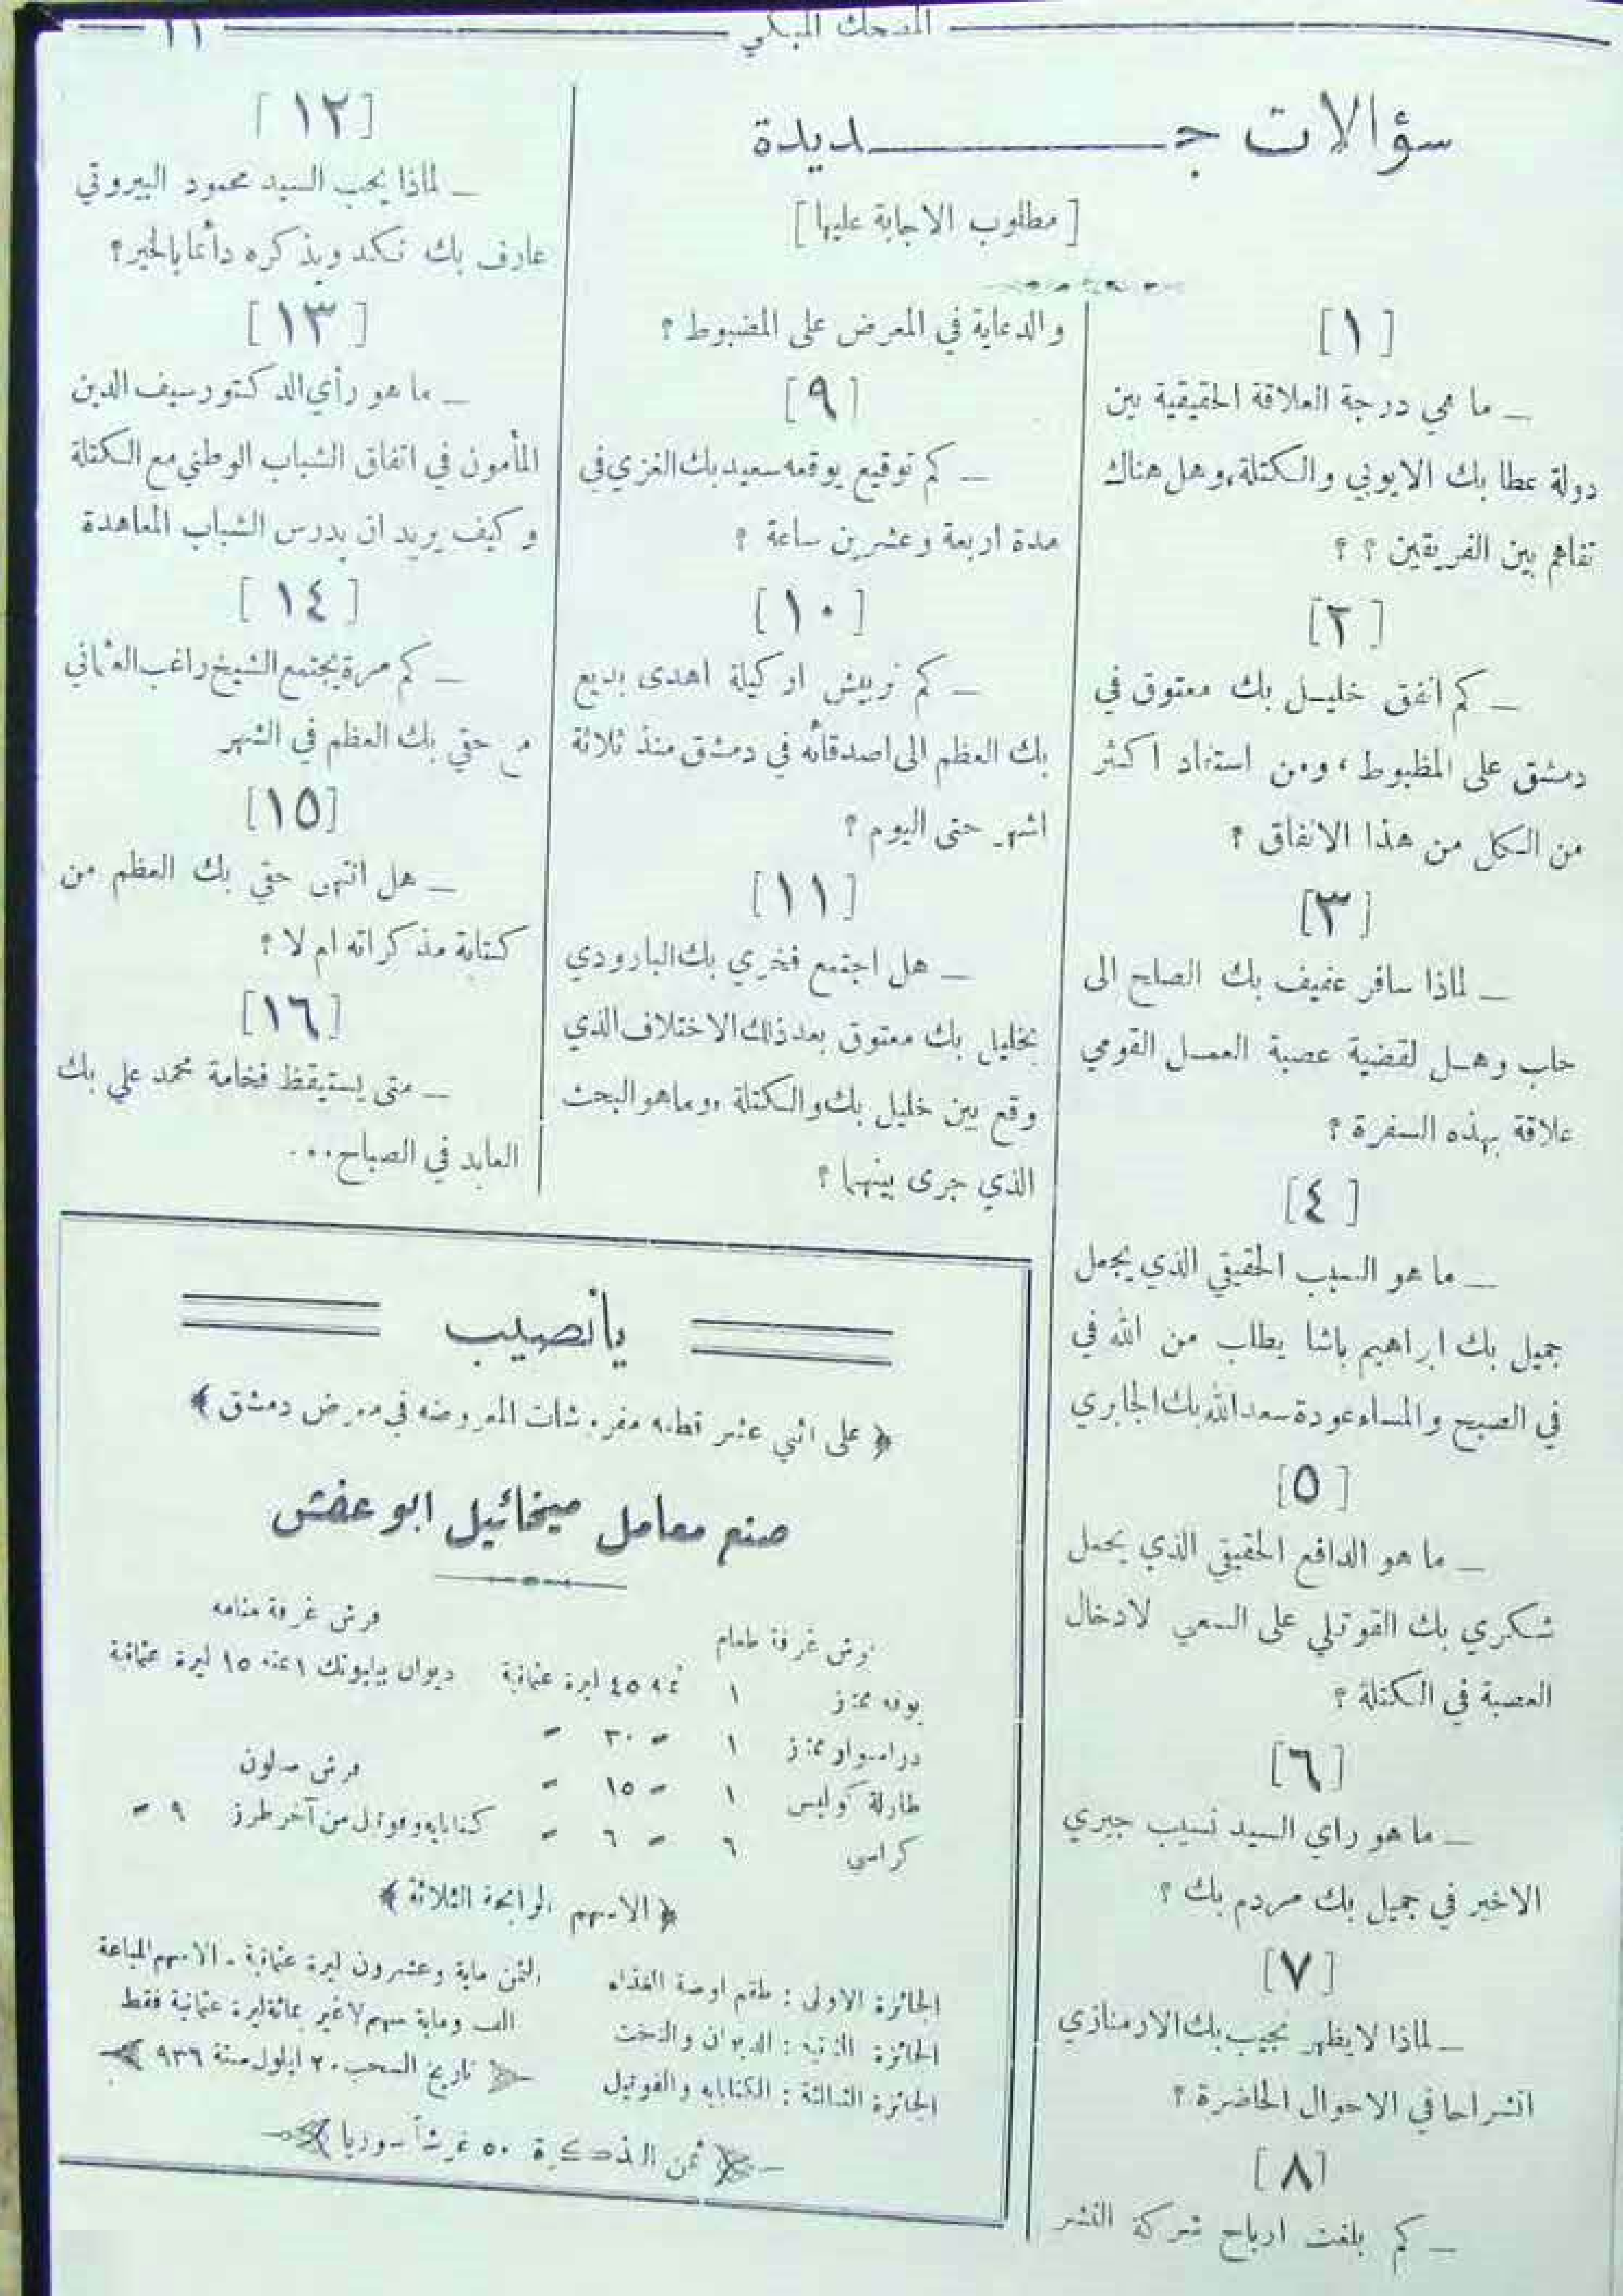 المضحك المبكي
١١
سؤالات جـــديدة
[مطلوب الاجابة عليها]
[١]
ـ ما هي درجة العلاقة الحقيقية بين
دولة عطا بك الايوبي والكتلة، وهل هناك
تفاهم بين الفريقين ؟ ؟
[٢]
ـ كم انفق خليل بك معتوق في
دمشق على المظبوط ، ومن استفاد اكثر
من الكل من هذا الانفاق ؟
[٣]
ـ لماذا سافر عفيف بك الصلح الى
حلب وهل لقضية عصبة العمل القومي
علاقة بهذه السفرة ؟
[٤]
ـ ما هو السبب الحقيقي الذي يجعل
جميل بك ابراهيم باشا يطلب من الله في
في الصبح والمساء عودة سعدالله بك الجابري
[٥]
ـ ما هو الدافع الحقيقي الذي يحمل
شكري بك القوتلي على السعي لادخال
العصبة في الكتلة ؟
[٦]
ـ ما هو راي السيد نسيب جبري
الاخير في جميل بك مردم بك ؟
[٧]
ـ لماذا لا يظهر نجيب بك الارمنازي
انشراحا في الاحوال الحاضرة ؟
[٨]
ـ كم بلغت ارباح شركة النشر
والدعاية في المعرض على المضبوط ؟
[٩]
ـ كم توقيع يوقعه سعيد بك الغزي في
مدة اربعة وعشرين ساعة ؟
[١٠]
ـ كم نربيش اركيلة اهدى بديع
بك العظم الى اصدقائه في دمشق منذ ثلاثة
اشهر حتى اليوم ؟
[١١]
ـ هل اجتمع فخري بك البارودي
بخليل بك معتوق بعد ذلك الاختلاف الذي
وقع بين خليل بك والكتلة ، وما هو البحث
الذي جرى بينهما ؟
[١٢]
ـ لماذا يحب السيد محمود البيروتي
عارف بك نكد ويذكره دائما بالخير ؟
[١٣]
ـ ما هو رأي الدكتور سيف الدين
المأمون في اتفاق الشباب الوطني مع الكتلة
وكيف يريد ان يدرس الشباب المعاهدة
[١٤]
ـ كم مرة يجتمع الشيخ راغب العثماني
مع حقي بك العظم في الشهر
[١٥]
ـ هل انتهى حقي بك العظم من
كتابة مذكراته ام لا ؟
[١٦]
ـ متى يستيقظ فخامة محمد علي بك
العابد في الصباح...
يانصيب
على اثني عشر قطعه مفروشات المعروضه في معرض دمشق
صنع معامل ميخائيل ابو عفش
فرش غرفة طعام
بوفه ممتاز ١ ثمنه ٤٥ ليرة عثمانية
درسوار ممتاز ١ " ٣٠ "
طاولة كوليس ١ " ١٥ "
كراسي ٦ " ٦ "
فرش غرفة منامه
ديوان بيابونك ١ ثمنه ١٥ ليرة عثمانية
فرش صالون
كنابايه وفوتيل من آخر طرز ٩ "
الاسهم الرابحة الثلاثة
الجائزة الاولى : طقم اوضة الغذاء
الجائزة الثانيه : الديوان والتخت
الجائزة الثالثة : الكنابايه والفوتيل
الثمن ماية وعشرون ليرة عثمانية ـ الاسهم المباعة
الف وماية سهم لا غير بمائة ليرة عثمانية فقط
تاريخ السحب ٢٠ ايلول سنة ٩٣٦
ثمن التذكرة ٥٠ غرشاً سوريا